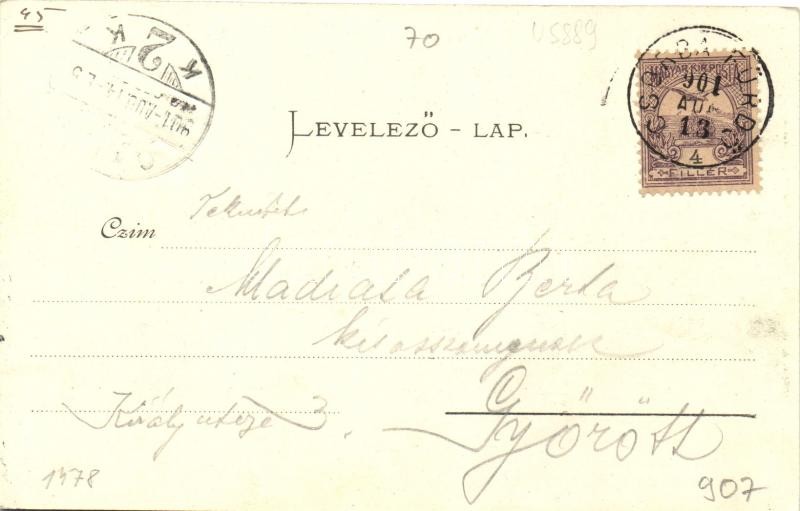 45
70
U5889
2
901 AUG 14
CSORBA FÜRDŐ
901
AUG
13
MAGYAR KIR. POSTA
4
FILLÉR
LEVELEZŐ – LAP.
Tekintetes
Czim
Madiata Berta
kisasszonynak
Győrött
Király utcza 3.
1578
907